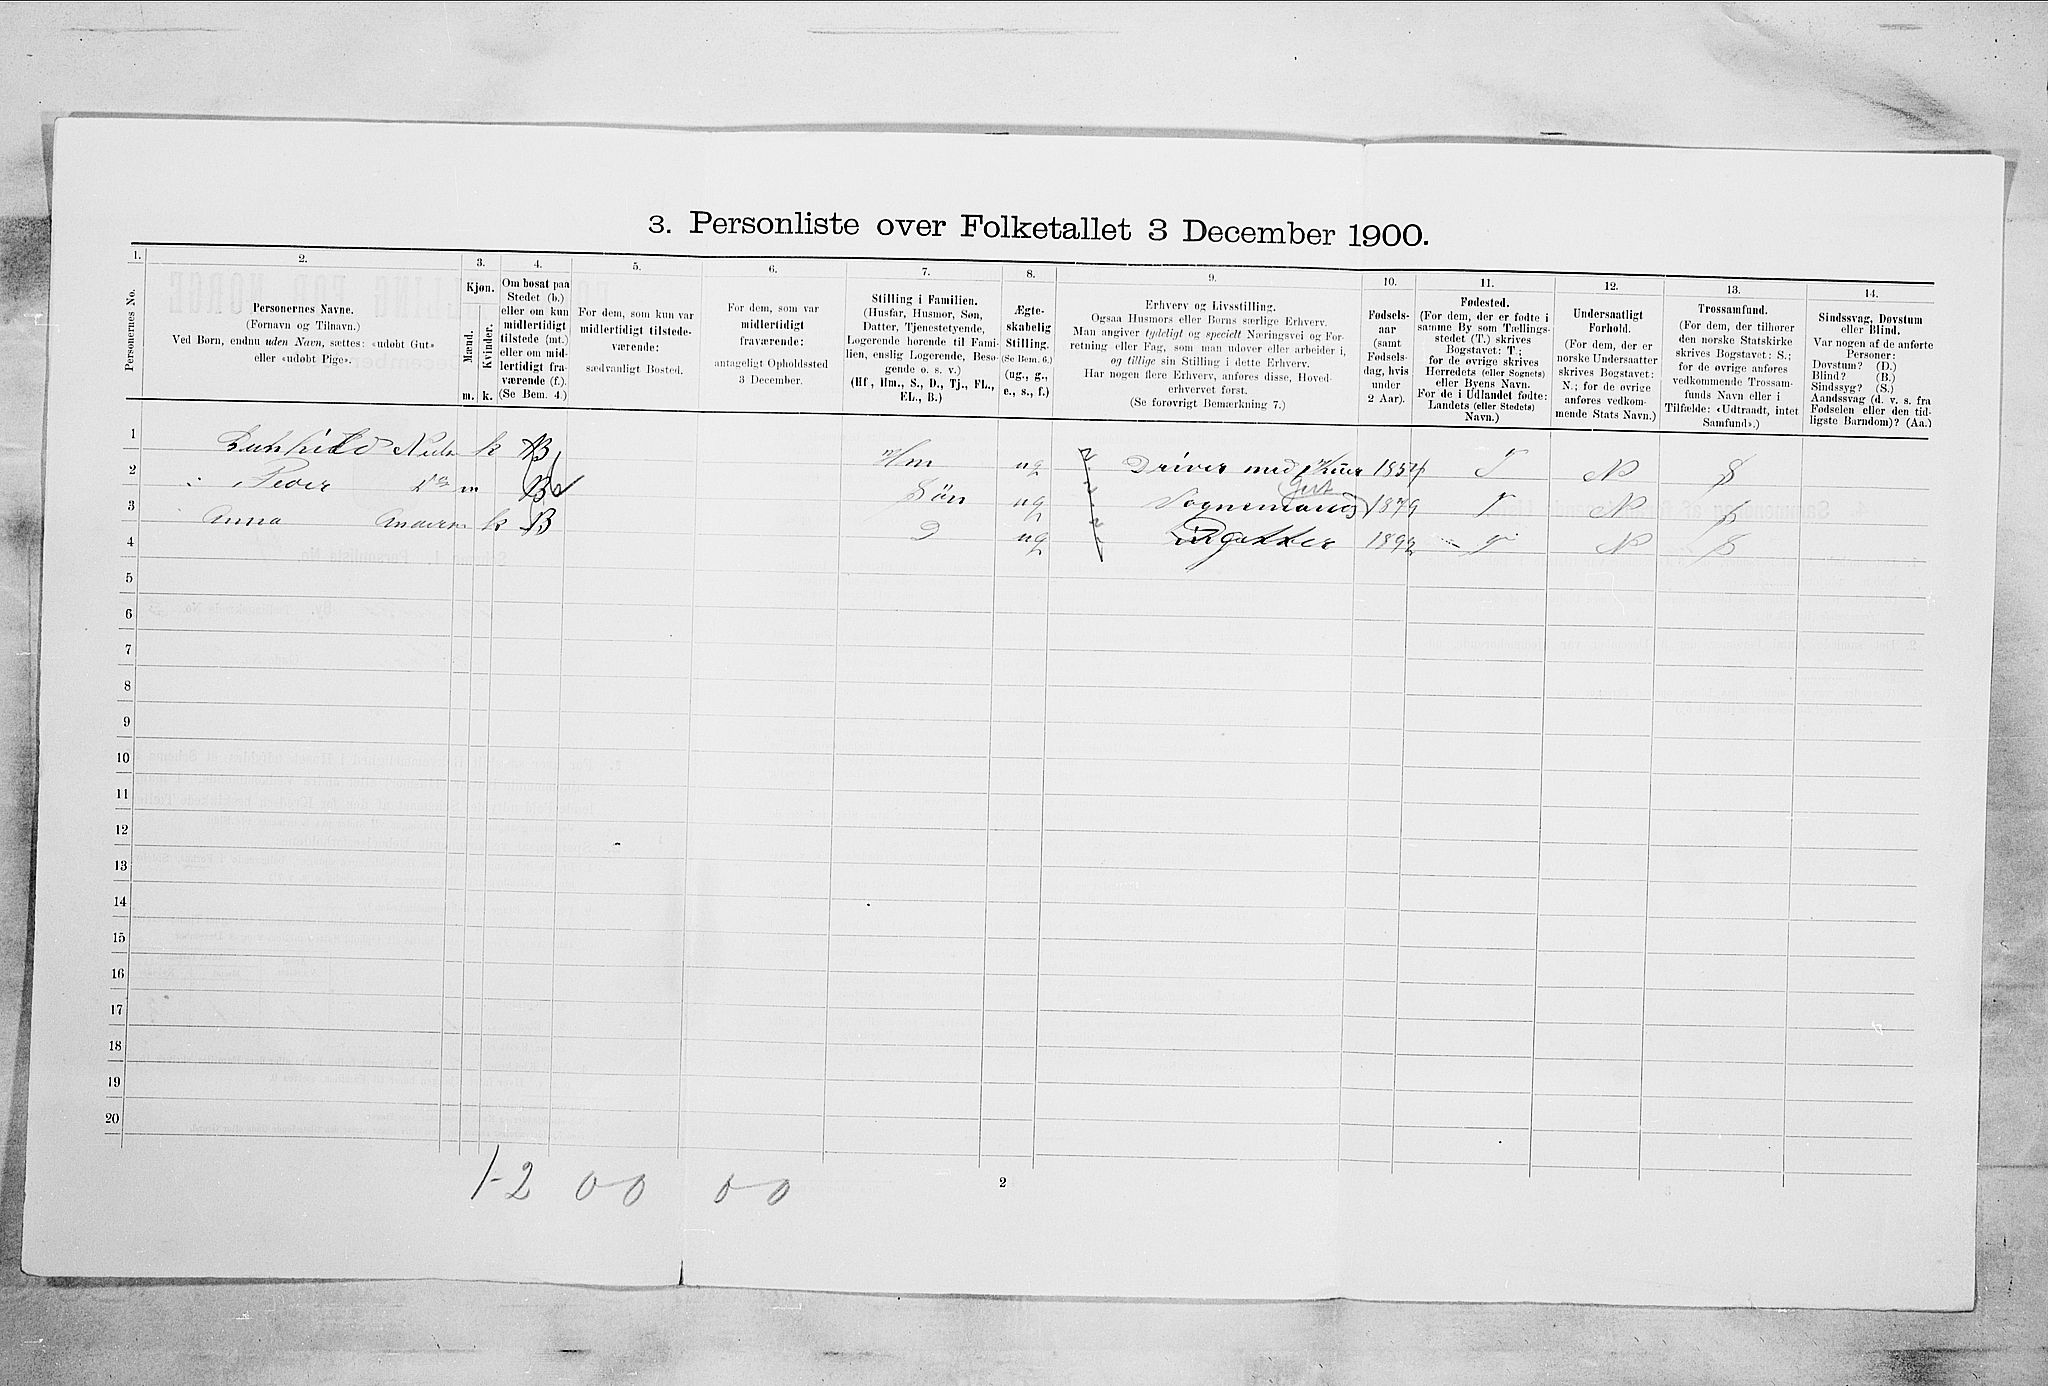 3. Personliste over Folketallet 3 December 1900.
1.
2.
3.
4.
5.
6.
7.
8.
9.
10.
11.
12.
13.
14.
Personernes No.
Personernes Navne.
(Fornavn og Tilnavn.)
Ved Børn, endnu uden Navn, sættes: «udøbt Gut»
eller «udøbt Pige».
Kjøn.
Mænd.
Kvinder.
m.
k.
Om bosat paa
Stedet (b.)
eller om kun
midlertidigt
tilstede (mt.)
eller om mid-
lertidigt fra-
værende (f.).
(Se Bem. 4.)
For dem, som kun var
midlertidigt tilstede-
værende:
sædvanligt Bosted.
For dem, som var
midlertidigt
fraværende:
antageligt Opholdssted
3 December.
Stilling i Familien.
(Husfar, Husmor, Søn,
Datter, Tjenestetyende,
Logerende hørende til Fami-
lien, enslig Logerende, Besø-
gende o. s. v.)
(Hf., Hm., S., D., Tj., FL.,
EL., B.)
Ægte-
skabelig
Stilling.
(Se Bem. 6.)
(ug., g.,
e., s., f.)
Erhverv og Livsstilling.
Ogsaa Husmors eller Børns særlige Erhverv.
Man angiver tydeligt og specielt Næringsvei og For-
retning eller Fag, som man udøver eller arbeider i,
og tillige sin Stilling i dette Erhverv.
Har nogen flere Erhverv, anføres disse, Hoved-
erhvervet først.
(Se forøvrigt Bemærkning 7.)
Fødsels-
aar
(samt
Fødsels-
dag, hvis
under
2 Aar).
Fødested.
(For dem, der er fødte i
samme By som Tællings-
stedet (T.) skrives
Bogstavet: T;
for de øvrige skrives
Herredets (eller Sognets)
eller Byens Navn.
For de i Udlandet fødte:
Landets (eller Stedets)
Navn.)
Undersaatligt
Forhold.
(For dem, der er
norske Undersaatter
skrives Bogstavet:
N.; for de øvrige
anføres vedkom-
mende Stats Navn.)
Trossamfund.
(For dem, der tilhører
den norske Statskirke
skrives Bogstavet: S.;
for de øvrige anføres
vedkommende Trossam-
funds Navn eller i
Tilfælde: «Udtraadt, intet
Samfund».)
Sindssvag, Døvstum
eller Blind.
Var nogen af de anførte
Personer:
Døvstum? (D.)
Blind? (B.)
Sindssyg? (S.)
Aandssvag (d. v. s. fra
Fødselen eller den tid-
ligste Barndom)? (Aa.)
1 Gunhild k B Hm ug Driver med 1854 T N S
2 Peder do m B Søn ug 1879 T N S
3 Anna Anders k B D ug 1892 T N S
4
5
6
7
8
9
10
11
12
13
14
15
16
17
18
19
20
1-2 0 0 0 0
2